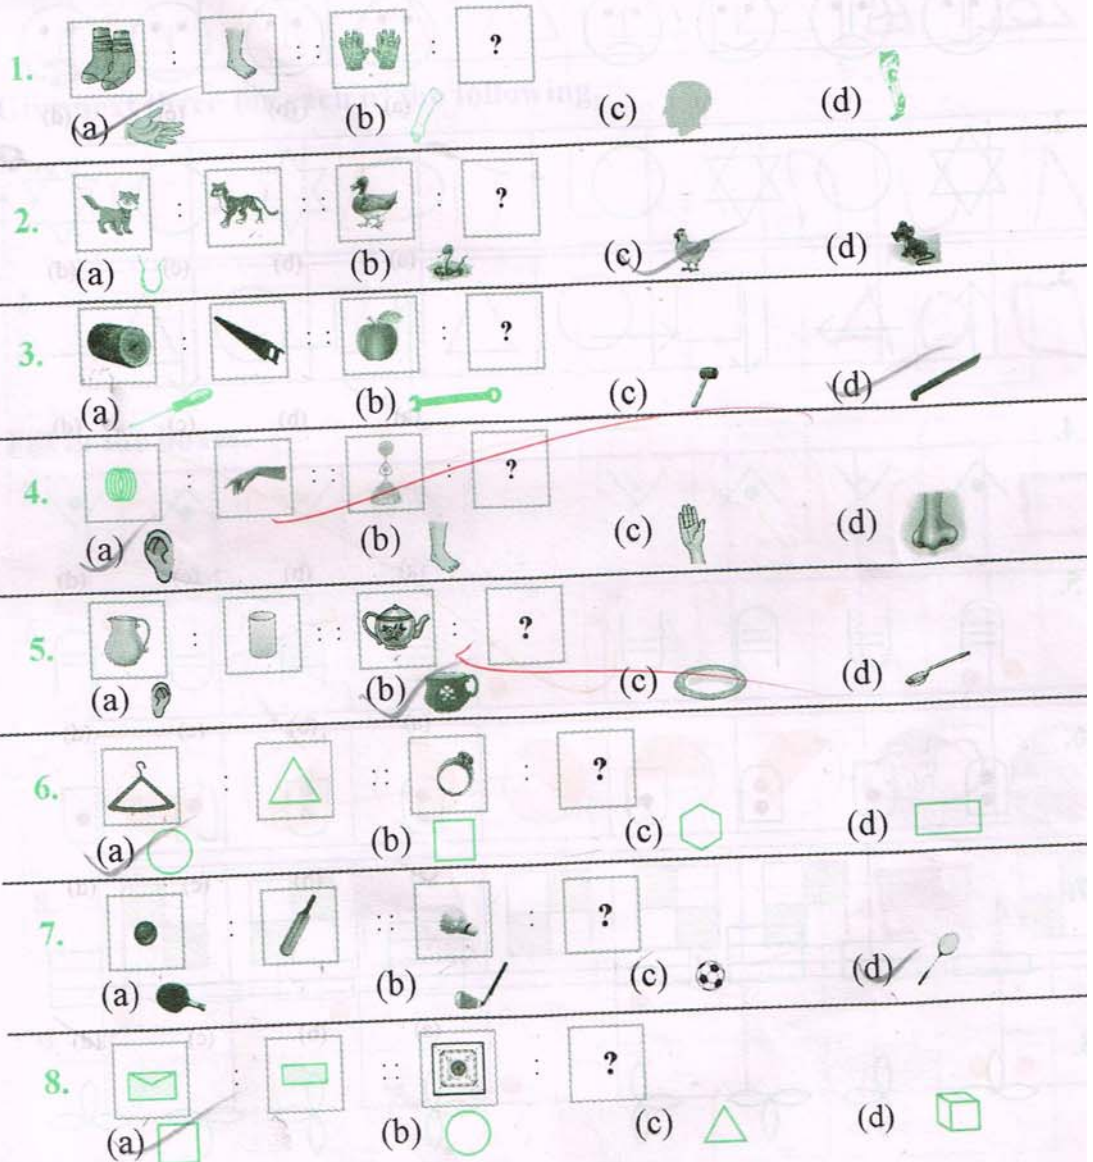 1. : :: : ?
(a) (b) (c) (d)
2. : :: : ?
(a) (b) (c) (d)
3. : :: : ?
(a) (b) (c) (d)
4. : :: : ?
(a) (b) (c) (d)
5. : :: : ?
(a) (b) (c) (d)
6. : :: : ?
(a) (b) (c) (d)
7. : :: : ?
(a) (b) (c) (d)
8. : :: : ?
(a) (b) (c) (d)